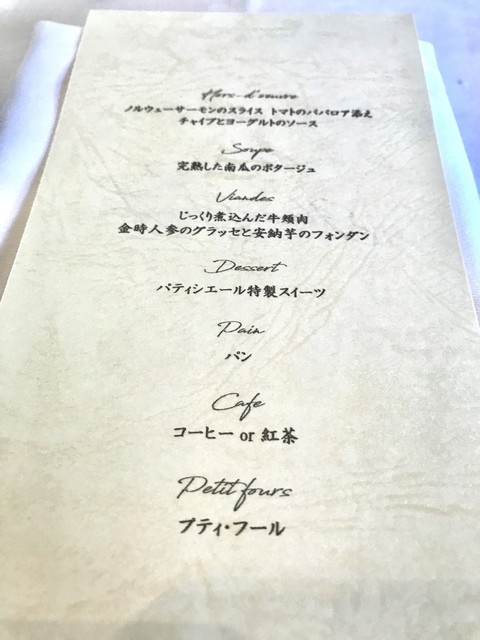 Hors-d'oeuvre
ノルウェーサーモンのスライス トマトのババロア添え
チャイブとヨーグルトのソース
Soupe
完熟した南瓜のポタージュ
Viandes
じっくり煮込んだ牛頬肉
金時人参のグラッセと安納芋のフォンダン
Dessert
パティシエール特製スイーツ
Pain
パン
Cafe
コーヒー or 紅茶
Petit fours
プティ・フール